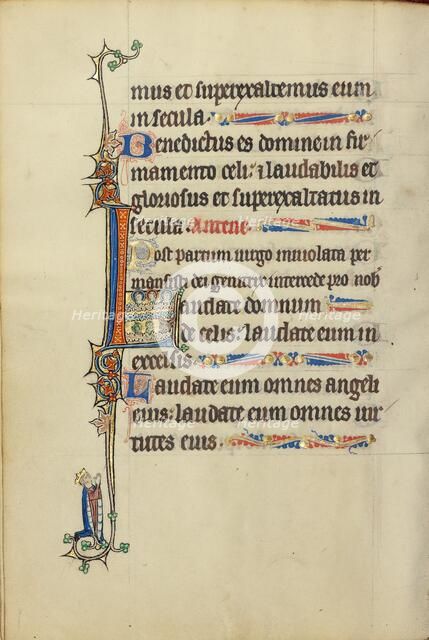 mus et superexaltemus eum
in secula.
Benedictus es domine in fir
mamento celi: et laudabilis et
gloriosus et superexaltatus in
secula. Antene.
Post partum uirgo inuiolata per
mansisti dei genitrix intercede pro nob
Laudate dominum
de celis: laudate eum in
excelsis.
Laudate eum omnes angeli
eius: laudate eum omnes uir
tutes eius.
Heritage Heritage Heritage